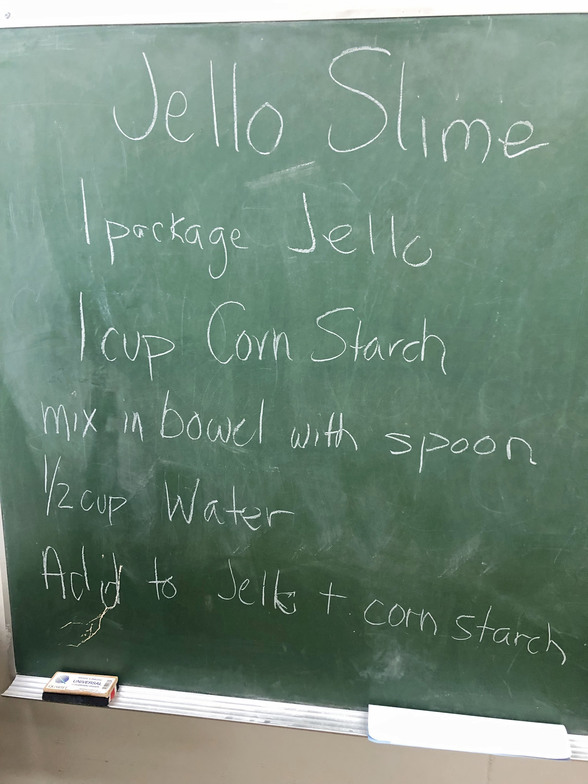 Jello Slime
1 package Jello
1 cup Corn Starch
mix in bowel with spoon
1/2 cup Water
Add to Jello + corn starch
UNIVERSAL